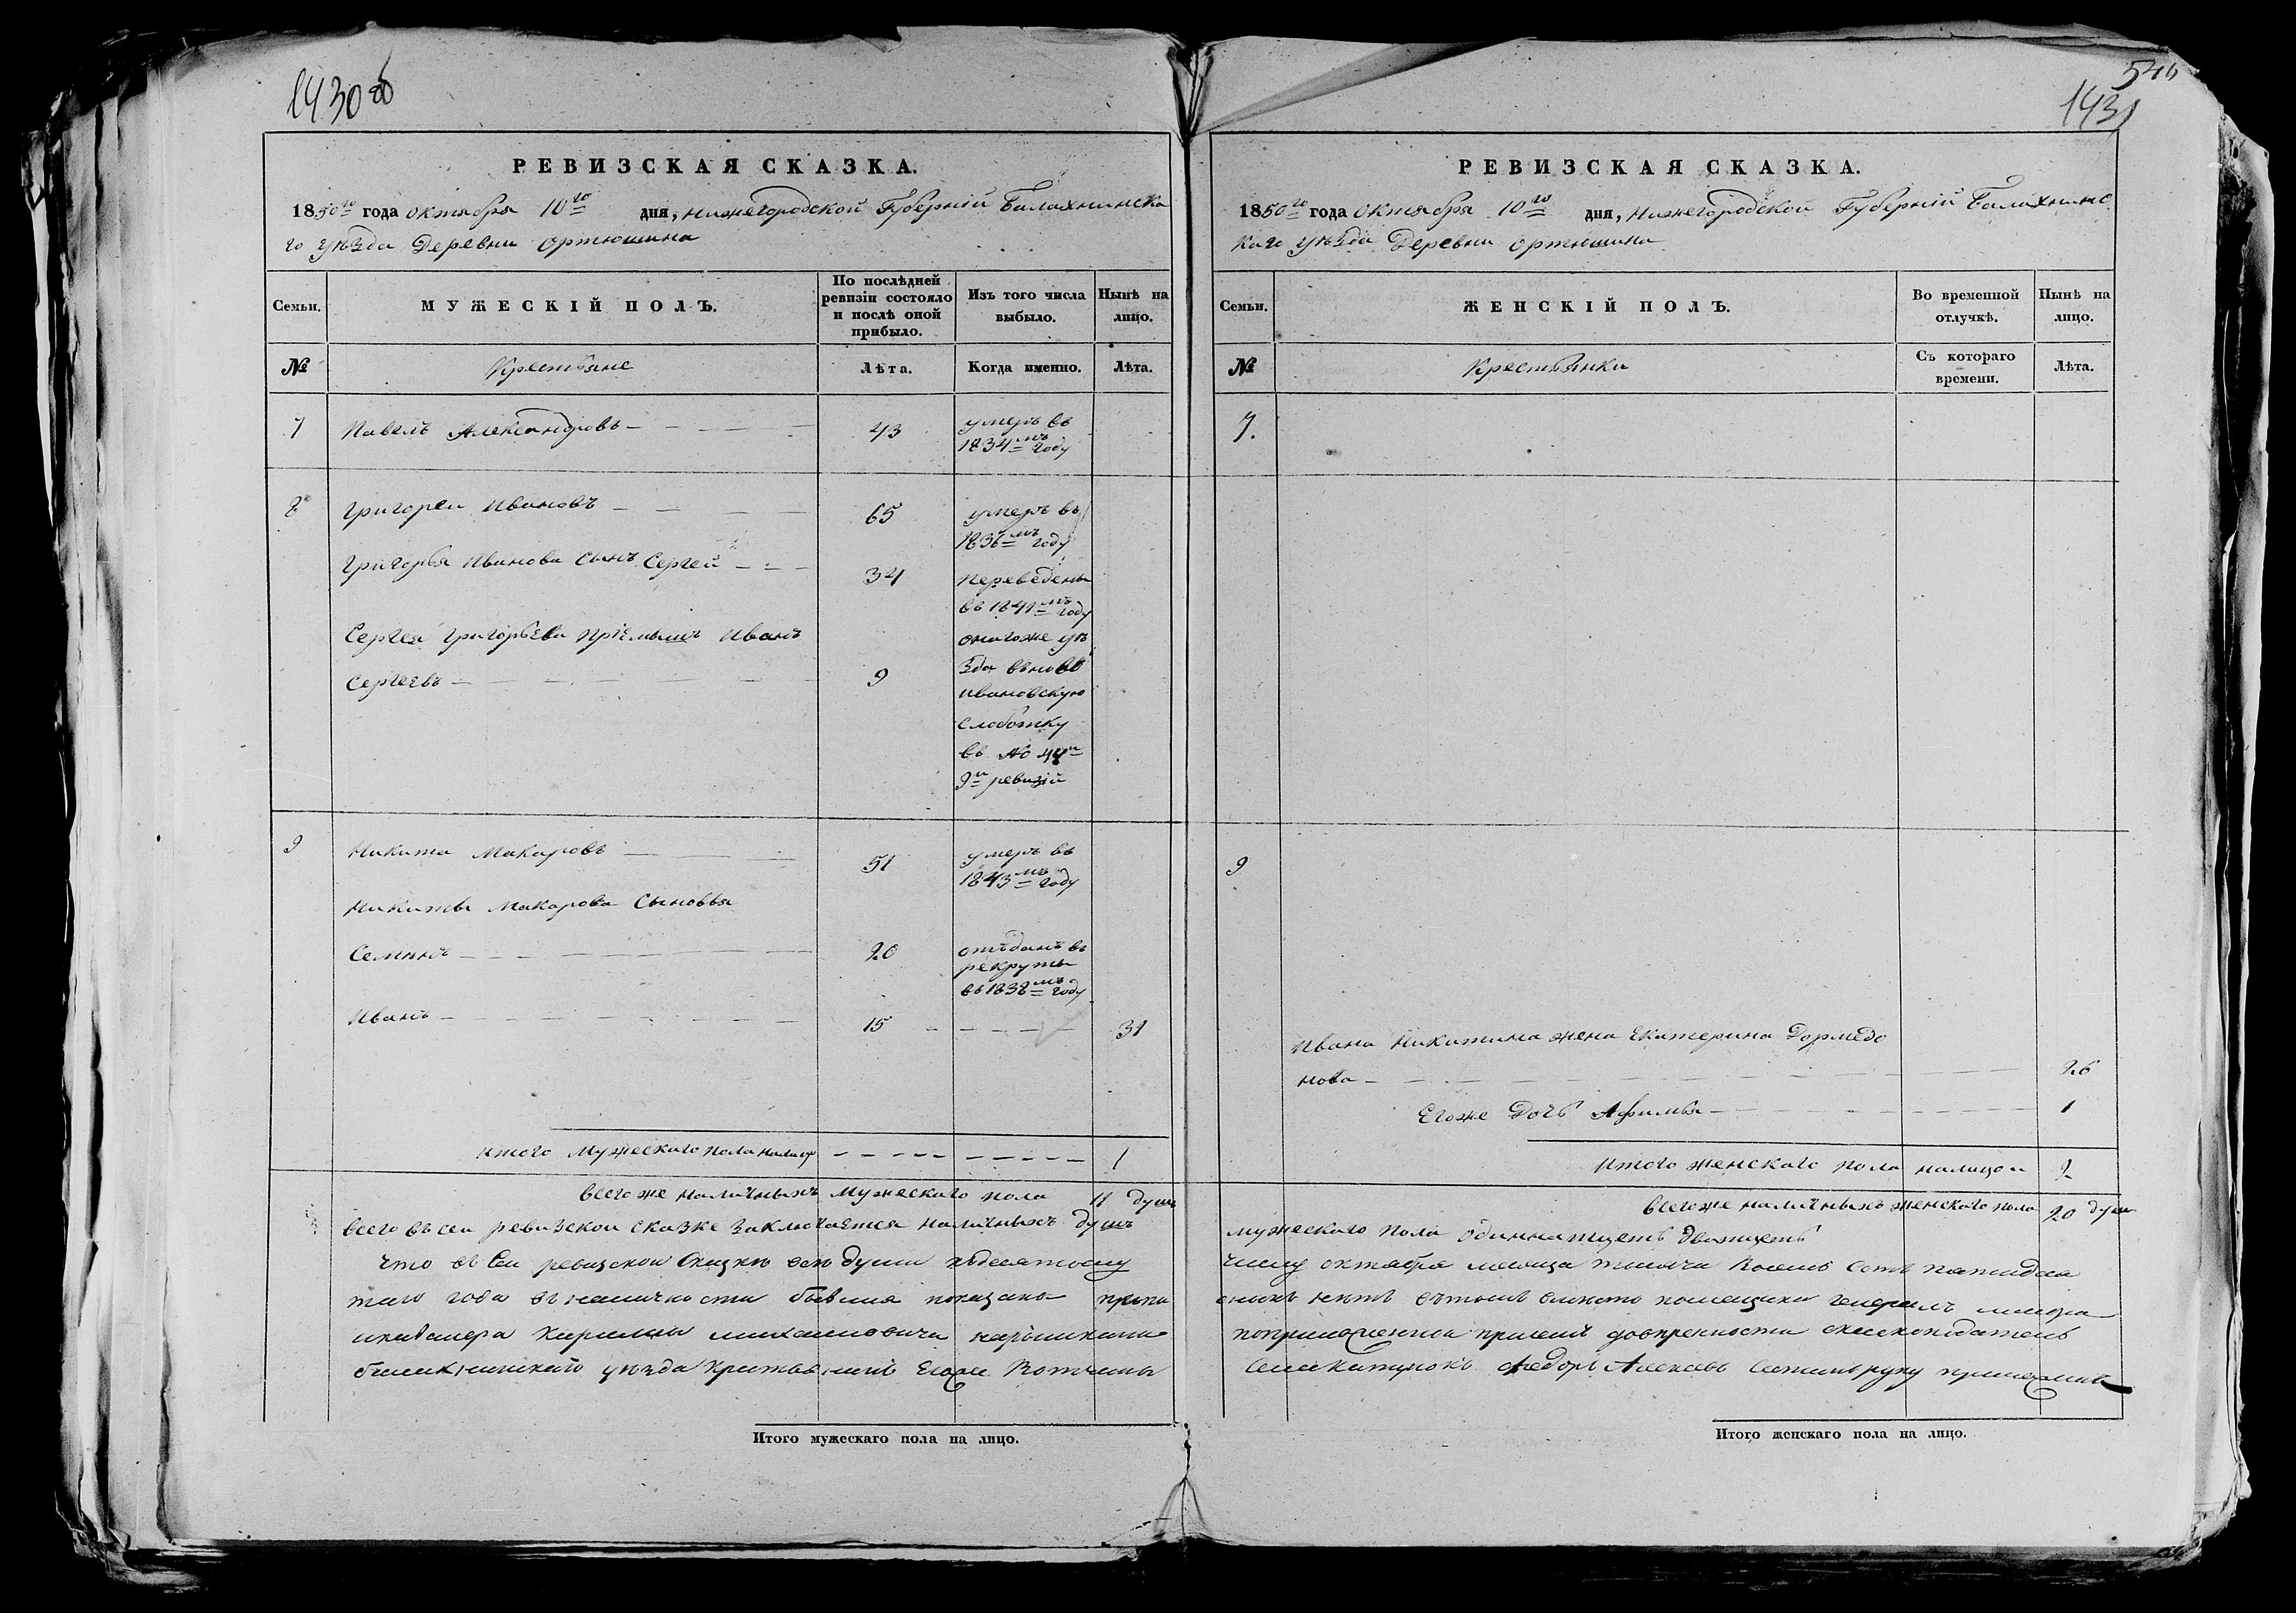 1430 об
РЕВИЗСКАЯ СКАЗКА.
1850го года октября 10го дня, нижегородской Губерніи Балахнинска
го уѣзда Деревни Ортюшина
Семьи.
МУЖЕСКІЙ ПОЛЪ.
По послѣдней ревизіи состояло и послѣ оной прибыло.
Изъ того числа выбыло.
Нынѣ на лицо.
№
Крестьяне
Лѣта.
Когда именно.
Лѣта.
7 Павелъ Александровъ 43 умеръ въ
1834мъ году
8 Григореи Ивановъ 65 умеръ въ
1836мъ году
Григорья Иванова Сынъ Сергей 34 переведены
въ 1841мъ году
Сергея Григорьева пріемышъ Иванъ онагоже уѣ
Сергеевъ 9 зда въ ново
ивановскую
слободку
въ № 44и
9и ревизіи
9 Никита Макаровъ 51 умеръ въ
1843мъ году
Никиты Макарова Сыновья
Семинъ 20 отъданъ въ
рекруты
въ 1838мъ году
Иванъ 15 31
итого Мужескаго пола налицо 1
всегоже наличныхъ мужескаго пола 11 душъ
всего въ сеи ревизскои сказке заключается наличныхъ душъ
что въ сеи ревизскои сказкѣ всѣ души
того года въ наличности бывшия показано
Кирилы михаиловича
балахнинскаго уѣзда Вотчины
546
1431
РЕВИЗСКАЯ СКАЗКА.
1850го года октября 10го дня, нижегородской Губерніи Балахнинс
каго уѣзда Деревни Ортюшина
Семьи.
ЖЕНСКІЙ ПОЛЪ.
Во временной отлучкѣ.
Нынѣ на лицо.
№
Крестьянки
Съ котораго времени.
Лѣта.
7.
9
Ивана Никитина жена Екатерина Дормедо
нова 26
Егоже Дочь Афимья 1
Итого женскаго пола налицо 2
всегоже наличныхъ женскаго пола 20 душъ
мужескаго пола одиннатцеть дватцеть
числу октября месяца тысяча восемь сотъ
помещика генералъ
Федоръ Алексевъ руку
Итого мужескаго пола на лицо.
Итого женскаго пола на лицо.